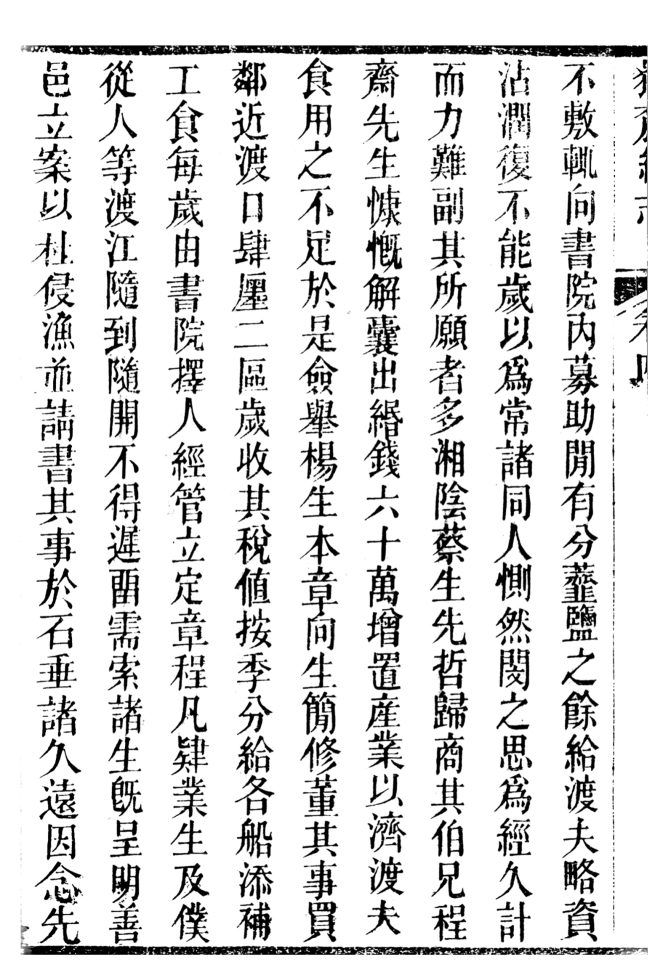 不敷輒向書院內募助閒有分虀鹽之餘給渡夫略資
沾潤復不能歲以爲常諸同人惻然閔之思爲經久計
而力難副其所願者多湘陰蔡生先哲歸商其伯兄程
齋先生慷慨解囊出緡錢六十萬增置産業以濟渡夫
食用之不足於是僉舉楊生本章向生簡修董其事買
鄰近渡口肆廛二區歲收其稅値按季分給各船添補
工食每歲由書院擇人經管立定章程凡肄業生及僕
從人等渡江隨到隨開不得遲畱需索諸生旣呈明善
邑立案以杜侵漁並請書其事於石垂諸久遠因念先